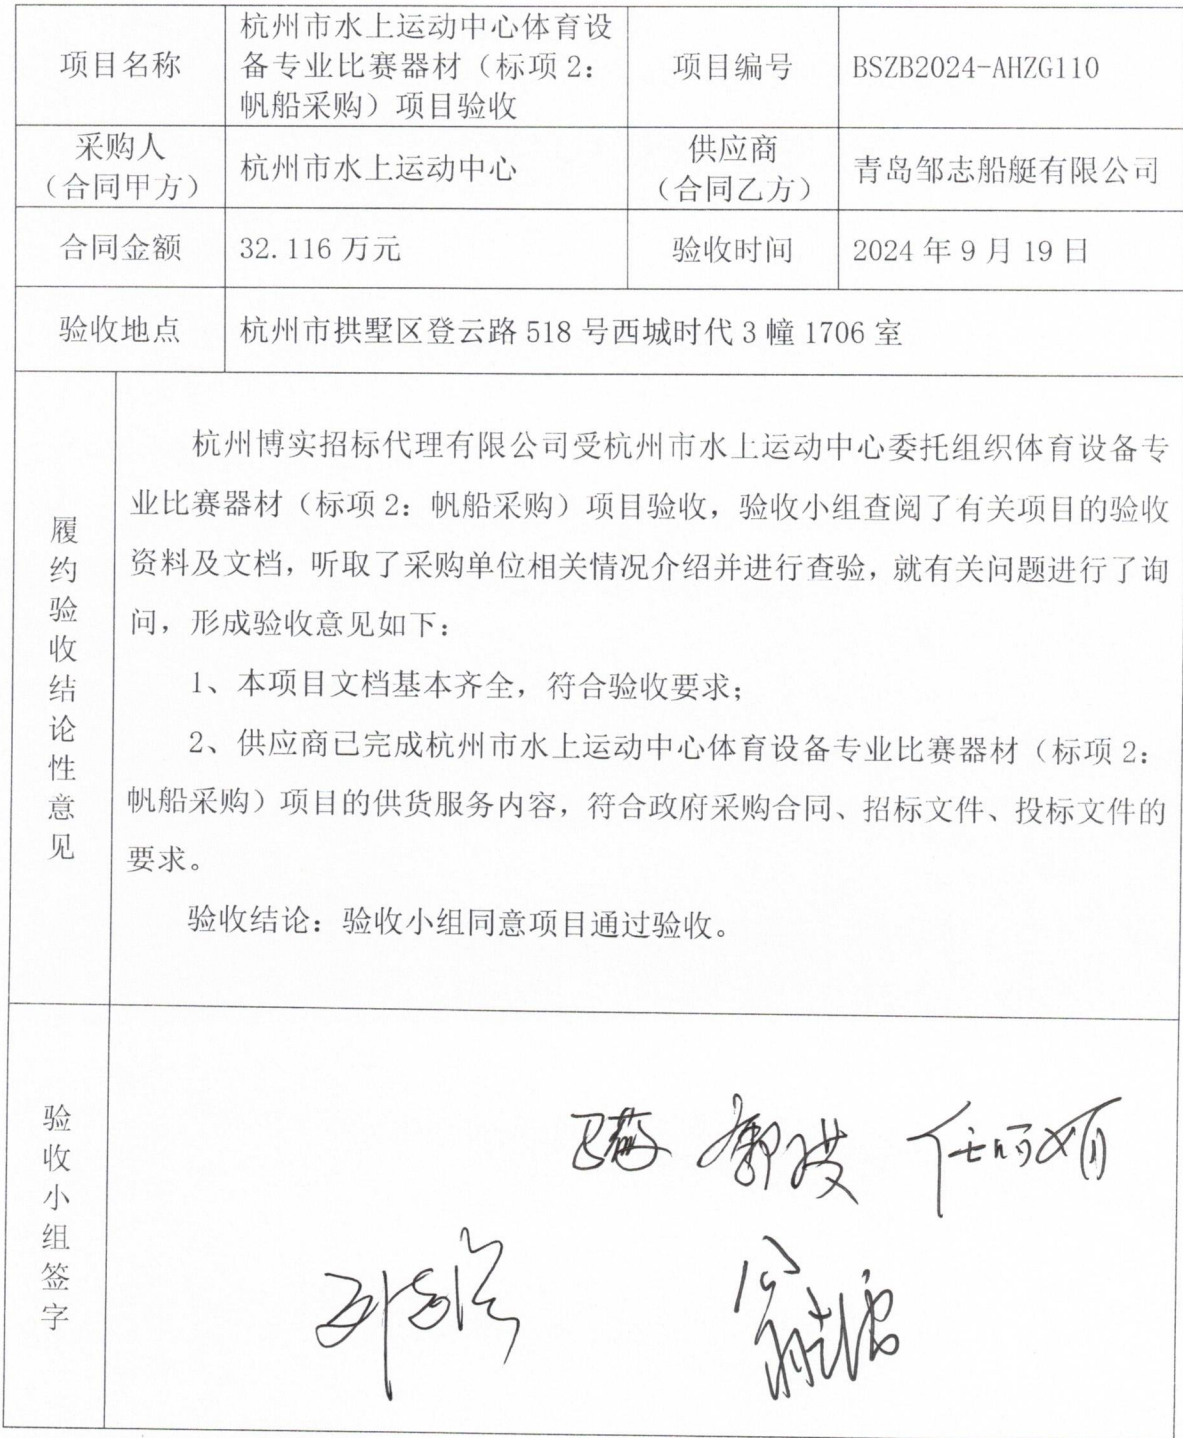 项目名称
杭州市水上运动中心体育设
备专业比赛器材（标项2：
帆船采购）项目验收
项目编号
BSZB2024-AHZG110
采购人
（合同甲方）
杭州市水上运动中心
供应商
（合同乙方）
青岛邹志船艇有限公司
合同金额
32.116万元
验收时间
2024年9月19日
验收地点
杭州市拱墅区登云路518号西城时代3幢1706室
履约验收结论性意见
杭州博实招标代理有限公司受杭州市水上运动中心委托组织体育设备专
业比赛器材（标项2：帆船采购）项目验收，验收小组查阅了有关项目的验收
资料及文档，听取了采购单位相关情况介绍并进行查验，就有关问题进行了询
问，形成验收意见如下：
1、本项目文档基本齐全，符合验收要求；
2、供应商已完成杭州市水上运动中心体育设备专业比赛器材（标项2：
帆船采购）项目的供货服务内容，符合政府采购合同、招标文件、投标文件的
要求。
验收结论：验收小组同意项目通过验收。
验收小组签字